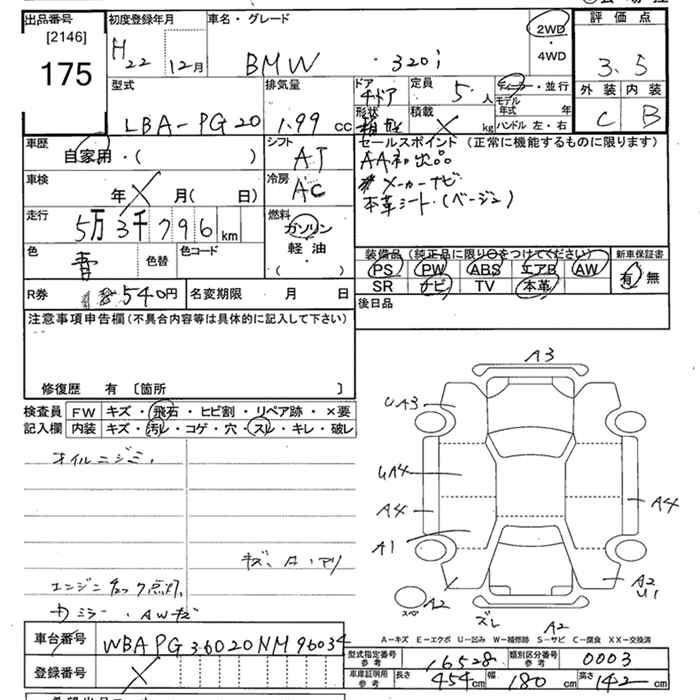 出品番号
[2146]
175
初度登録年月
H22 12月
車名・グレード
BMW 320i
2WD
・
4WD
評価点
3.5
外装 内装
C B
型式
LBA-PG20
排気量
1.99 cc
ドア
4ドア
形状
箱形
定員
5人
積載
kg
ディーラー・並行
モデル年式 年
ハンドル 左・右
車歴
自家用・( )
シフト
AT
セールスポイント(正常に機能するものに限ります)
AA初出品
メーカーナビ
本革シート(ベージュ)
車検
年 月( 日)
冷房
AC
走行
5万3千796km
燃料
ガソリン
軽油
・( )
色
青
色替
色コード
装備品(純正品に限り○をつけてください)
PS PW ABS エアB AW
SR ナビ TV 本革
新車保証書
有・無
R券
540円
名変期限 月 日
後日品
注意事項申告欄(不具合内容等は具体的に記入して下さい)
修復歴 有 〔箇所 〕
検査員 FW キズ・飛石・ヒビ割・リペア跡・×要
記入欄 内装 キズ・汚レ・コゲ・穴・スレ・キレ・破レ
オイルニジミ、
キズ、
エンジンチェック点灯、
カミラー・AWキズ
A3
UA3
UA4
A4
A4
A1
スペ
A2
ズレ
A2
A2
U1
A-キズ E-エクボ U-凹み W-補修跡 S-サビ C-腐食 XX-交換済
車台番号
WBAPG36020NM96034
登録番号
型式指定番号
参考
16528
類別区分番号
参考
0003
車庫証明用
参考
長さ 454cm 幅 180cm 高さ 142cm